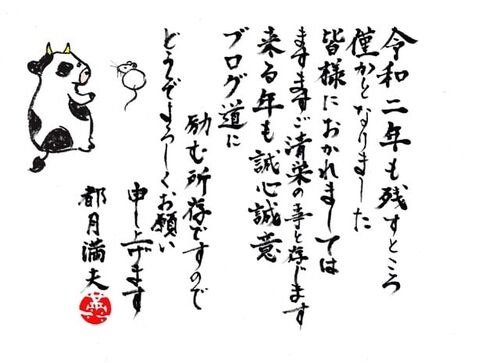 令和二年も残すところ
僅かとなりました
皆様におかれましては
ますますご清栄の事と存じます
来る年も誠心誠意
ブログ道に
励む所存ですので
どうぞよろしくお願い
申し上げます
都月満夫